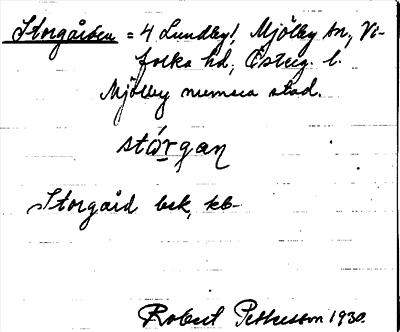 Storgården = 4 Lundby!, Mjölby sn, Vi-
folka hd, Österg. l.
Mjölby numera stad.
stórgan
Storgård bek, kb-
Robert Pettersson 1930.